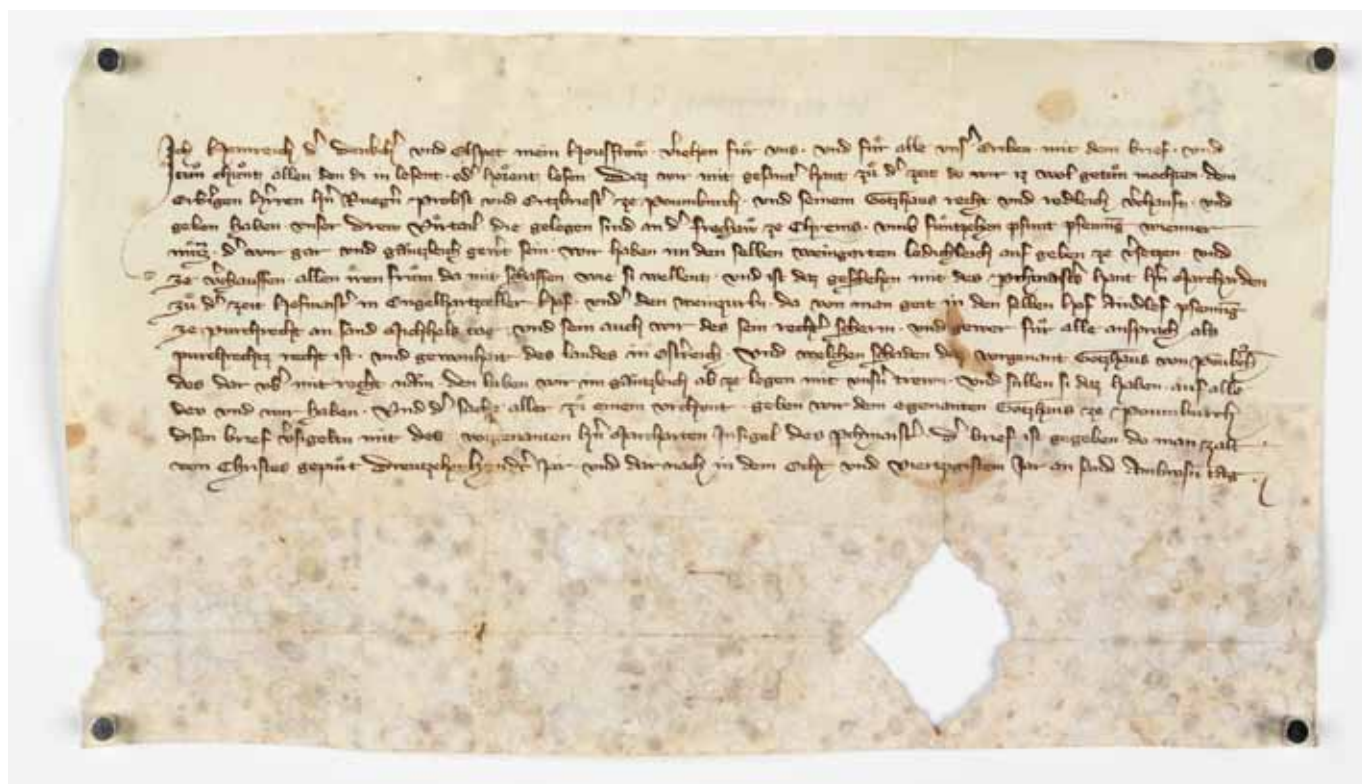 Ich Heinreich d' vnd Elspet mein Housfrow v'iehen fuͤr vns · vnd fuͤr alle vns' Eriben mit dem brief · vnd
tuͦn chuͦnt allen den di in lesent · od' hoͤrent lesen Daz wir mit gesamt' hant zuͦ d' zeit do wir iz wol getuͦn mochten dem
Erb'gen Herren hn̄ Ruegn̄ Probst vnd Ertzbriest' ze Poumburch · vnd seinem Gotzhaus recht vnd redleich v'chauft · vnd
geben haben vnser drew Virtail die gelegen sind an d' ze Chrems · vmb fuͤntzehen pfunt pfening wienner
muͤnzz · d' wir gar vnd gaͤntzleich gew't sein · wir haben im den selben weingarten ledichleich auf geben ze v'setzen vnd
ze v'chauffen · allen iren frum da mit schaffen wie si wellent · vnd ist daz geschehen mit des pchmaist's hant hn̄ Marcharden
zuͦ d' zeit hofmaist' in Engelhartzceller hof · vnd' den weinpurln · da von man geit in den selben hof Andlef pfening
ze purchrecht an sand Michhels tag · vnd sein auch wir des sein recht' scherm · vnd gewer fuͤr alle ansprach als
purchrechtz recht ist · vnd gewonhait des landes in Ost'reich Vnd welchen schaden daz vorgenant Gotzhaus von
des dar vb' mit recht naͤm · den haben wir im gaͤntzleich ab ze legen mit vnsn̄ trewn · vnd sullen si daz haben · auf alle
dev vnd wir haben · Vnd d' sache aller zuͦ einem vrchunt · geben wir dem egenanten Gotzhaus ze Poumburch
disen brief v'sigelten mit des vorgenanten hn̄ Marcharten Insigel des pchmaist' · D' brief ist gegeben do man zalt ·
von Christes gepuͤrt Dreutzehen hund't Jar · vnd dar nach in dem Acht vnd Viertzgistem Jar an sand Ambrosii tag ·